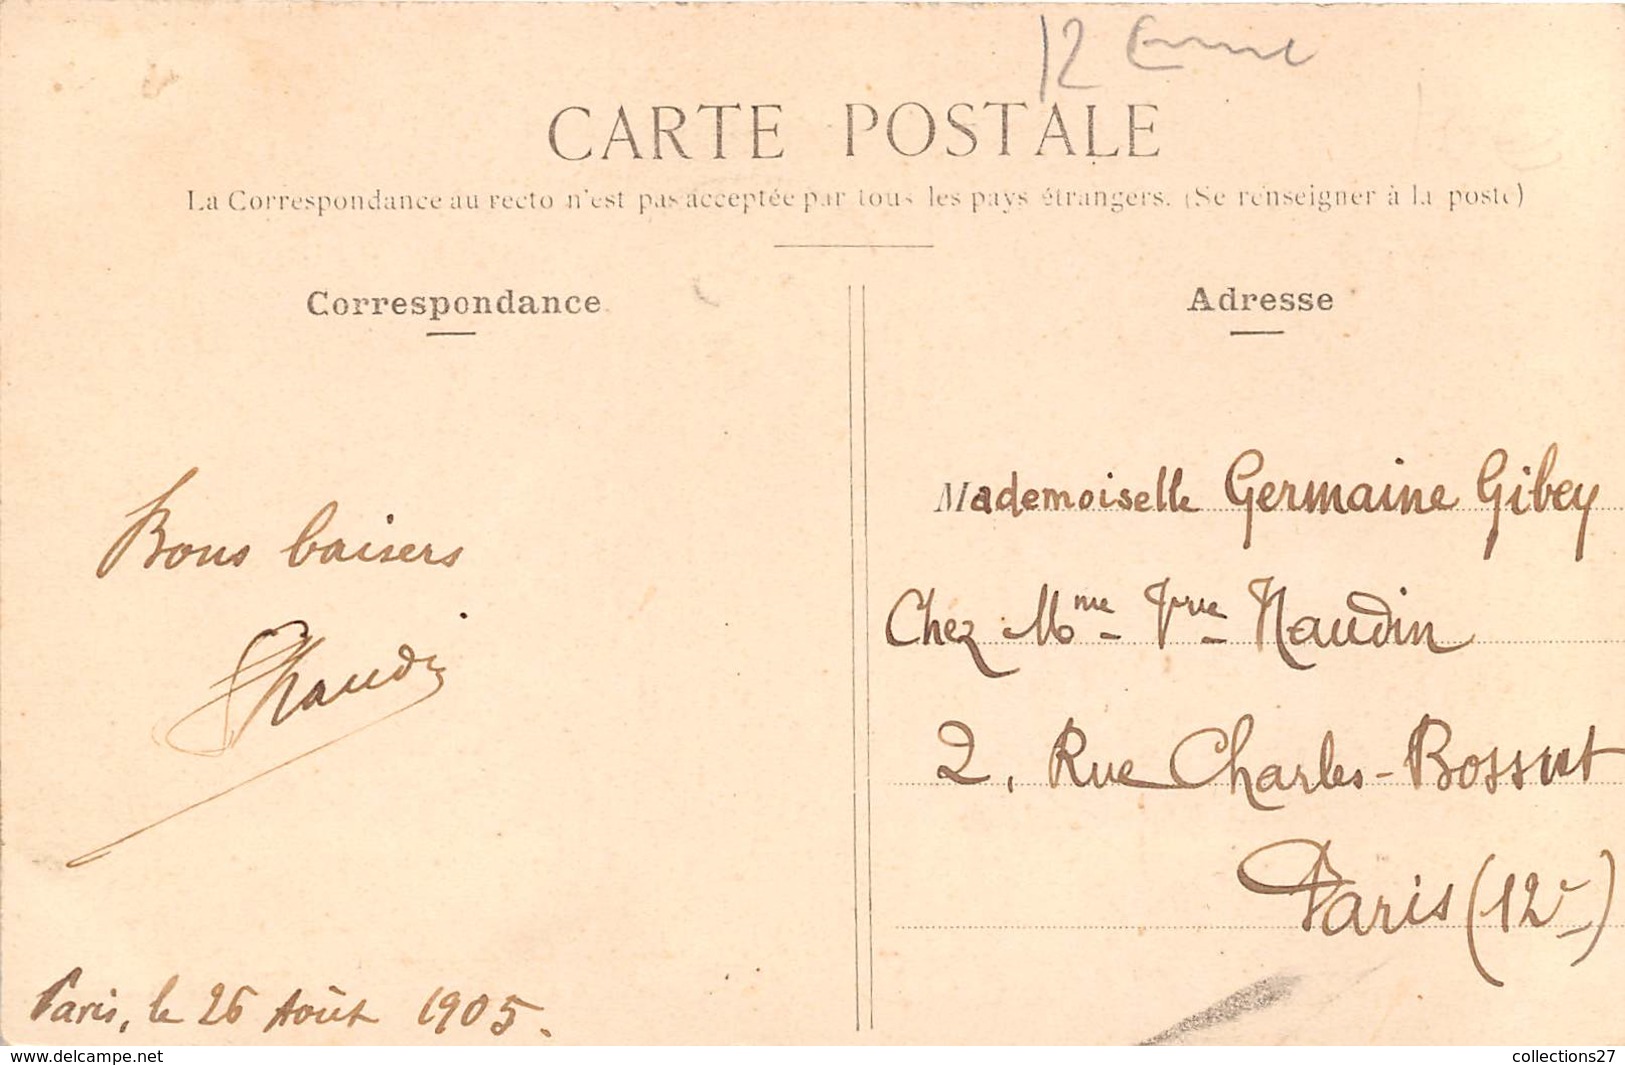 12 ème
CARTE POSTALE
La Correspondance au recto n'est pas acceptée par tous les pays étrangers. (Se renseigner à la poste)
Correspondance
Adresse
Bons baisers
Paris, le 26 Août 1905.
Mademoiselle Germaine Gibey
Chez Mme Vve Naudin
2, Rue Charles-Bossut
Paris (12e)
delcampe.net
collections27